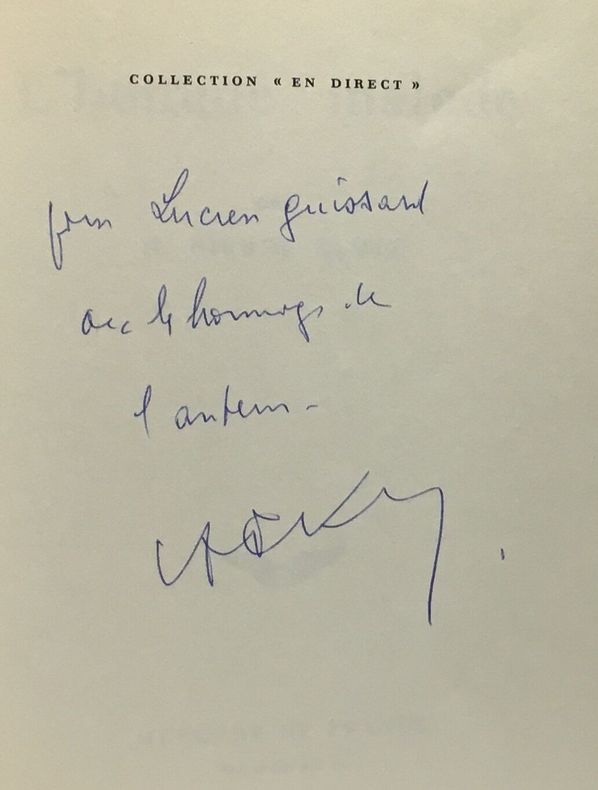 COLLECTION « EN DIRECT »
pour Lucien Guissard
avec les hommages de
l'auteur -